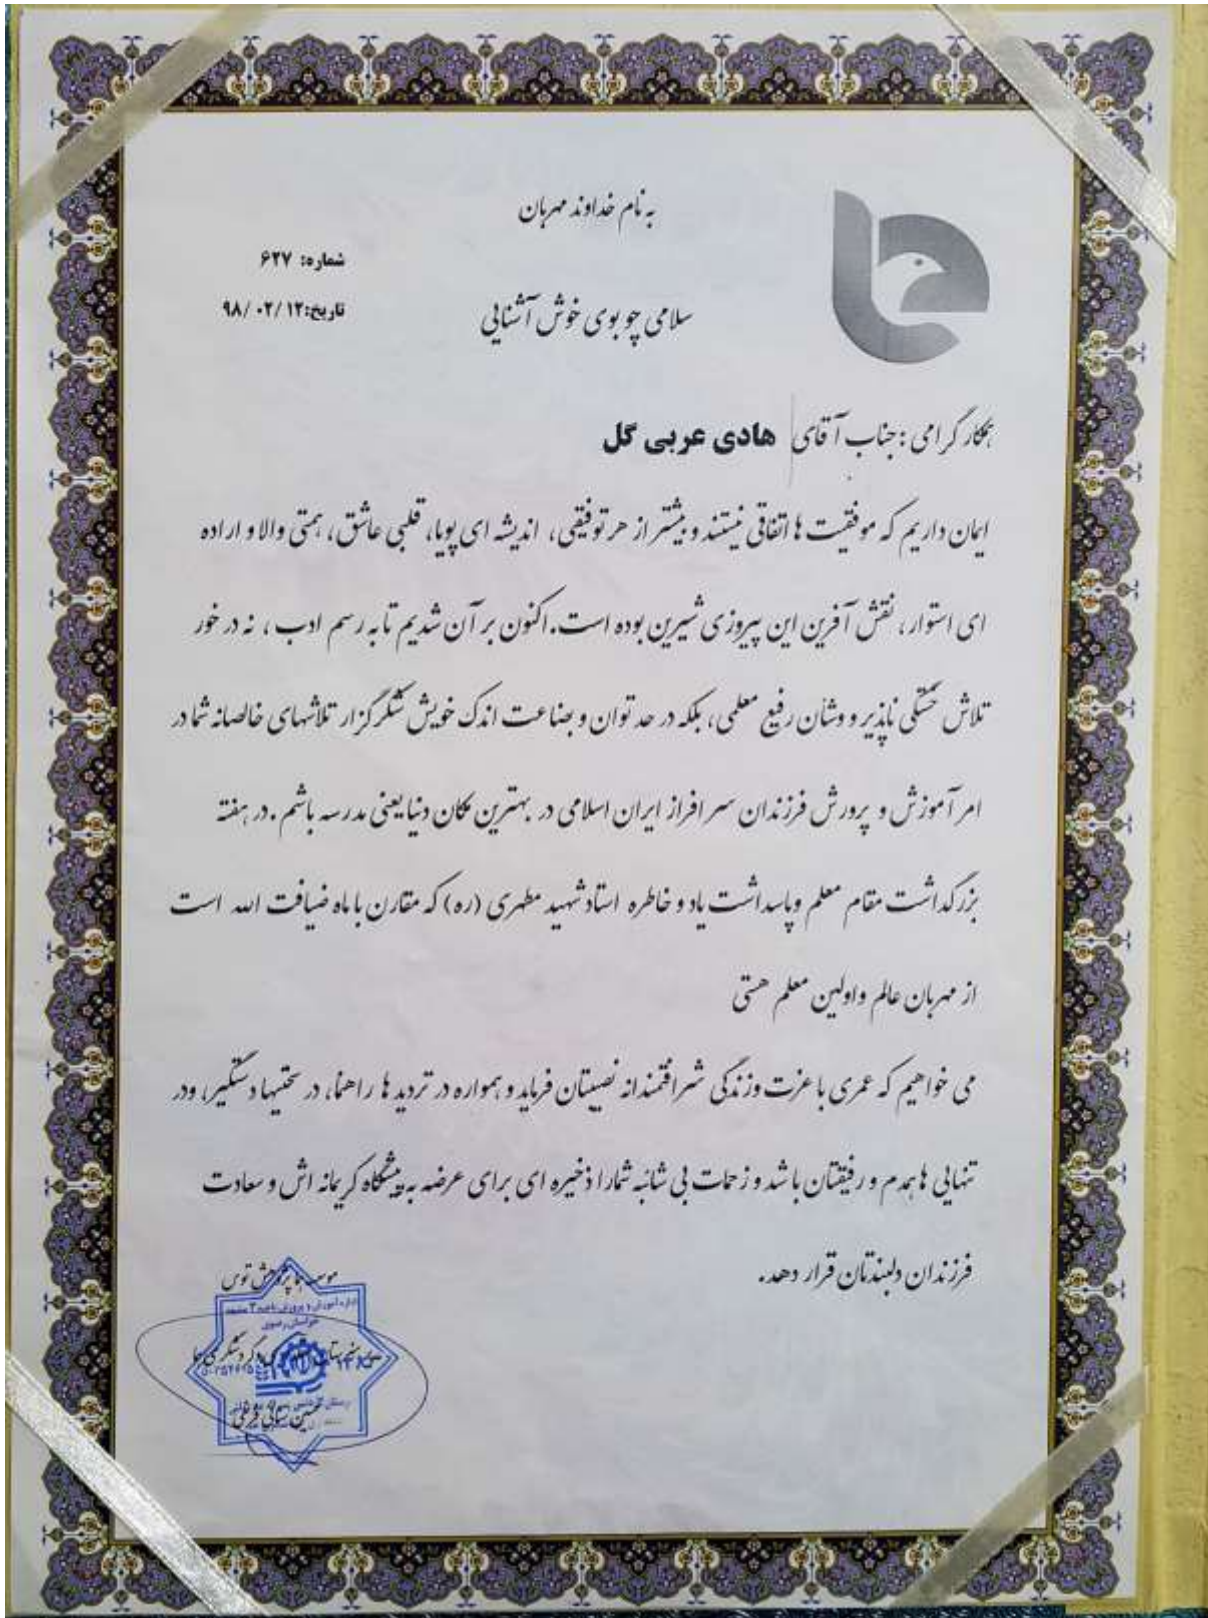 به نام خداوند مهربان
شماره: ۶۲۷
تاریخ:۹۸/۰۲/۱۲
سلامی چو بوی خوش آشنایی
همکار گرامی : جناب آقای هادی عربی گل
ایمان داریم که موفقیت ها اتفاقی نیستند و بیشتر از هر توفیقی، اندیشه ای پویا، قلبی عاشق، همتی والا و اراده
ای استوار، نقش آفرین این پیروزی شیرین بوده است. اکنون بر آن شدیم تا به رسم ادب ، نه در خور
تلاش خستگی ناپذیر و وشان رفیع معلمی، بلکه در حد توان و بضاعت اندک خویش شکرگزار تلاشهای خالصانه شما در
امر آموزش و پرورش فرزندان سرافراز ایران اسلامی در بهترین مکان دنیا یعنی مدرسه باشم . در هفته
بزرگداشت مقام معلم وپاسداشت یاد و خاطره استاد شهید مطهری (ره) که مقارن با ماه ضیافت الله است
از مهربان عالم واولین معلم هستی
می خواهیم که عمری با عزت وزندگی شرافتمندانه نصیبتان فرماید و همواره در تردید ها راهنما، در سختیها دستگیر، ودر
تنهایی ها همدم و رفیقتان باشد و زحمات بی شائبه شما را ذخیره ای برای عرضه به پیشگاه کریمانه اش و سعادت
فرزندان دلبندتان قرار دهد.
موسسه هما پژوهش توس
اداره آموزش و پرورش ناحیه ۳ مشهد
خراسان رضوی